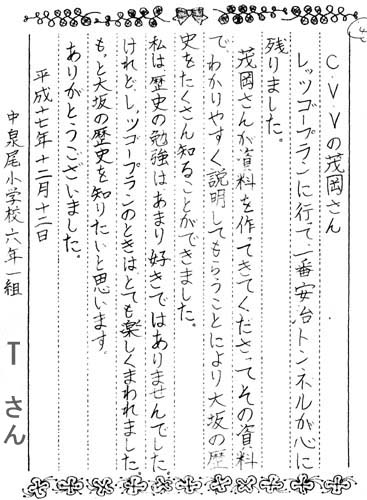 4
C.V.Vの茂岡さん
レッツゴープランに行て、一番安治トンネルが心に
残りました。
茂岡さんが資料を作ってきてくださってその資料
で、わかりやすく説明してもらうことにより大坂の歴
史をたくさん知ることができました。
私は歴史の勉強はあまり好きではありませんでした
けれど、レッツゴープランのときはとても楽しくまわれました。
もっと大坂の歴史を知りたいと思います。
ありがとうございました。
平成十七年十二月十二日
中泉尾小学校六年一組
Tさん